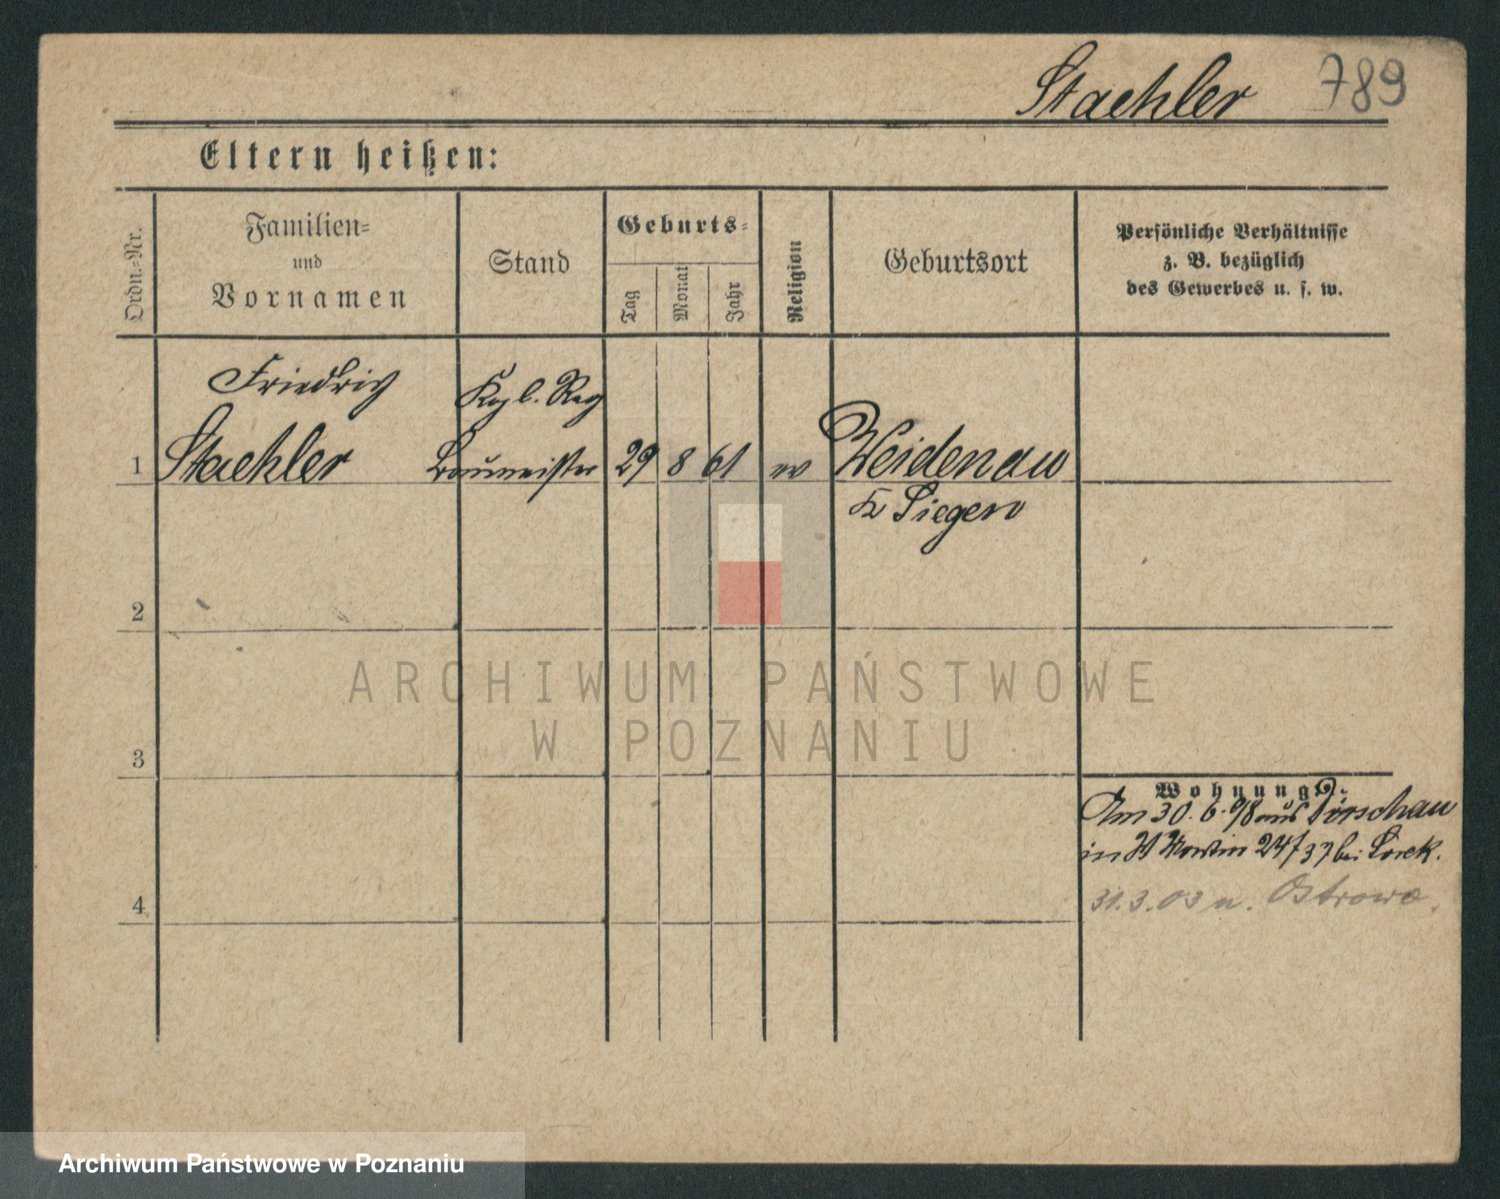 Staehler 789
Eltern heißen:
Ordn.-Nr.
Familien-
und
Vornamen
Stand
Geburts-
Tag
Monat
Jahr
Religion
Geburtsort
Persönliche Verhältnisse
z. B. bezüglich
des Gewerbes u. s. w.
Friedrich Kgl. Reg
1 Staehler Baumeister 29 8 61 ev Weidenau
K Siegen
2
3
4
Wohnung:
Am 30. 6. 98 aus Dirschau
in St Martin 24/37 bei
31.3.03 n. Ostrowo.
ARCHIWUM PAŃSTWOWE
W POZNANIU
Archiwum Państwowe w Poznaniu